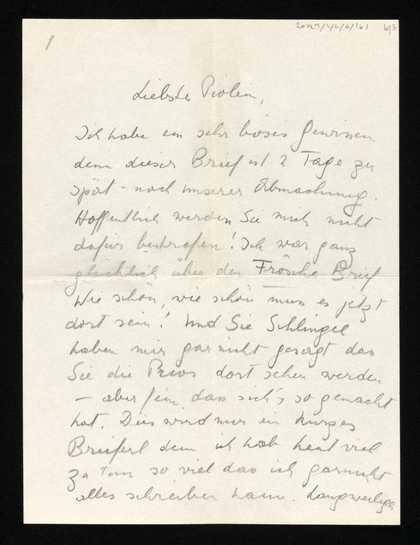 Liebster Piolin,
Ich habe ein sehr böses Gewissen
denn dieser Brief ist 2 Tage zu
spät - nach unserer Abmachung.
Hoffentlich werden Sie mich nicht
dafür bestrafen! Ich war ganz
glücklich über den Frösche Brief
Wie schön, wie schön muss es jetzt
dort sein! Und Sie Schlingel
haben mir gar nicht gesagt das
Sie die dort sehen werden
- aber fein das sich's so gemacht
hat. Dies wird nur ein kurzes
Brieferl denn ich hab heut viel
zu tun so viel das ich garnicht
alles schreiben kann. Langweilige